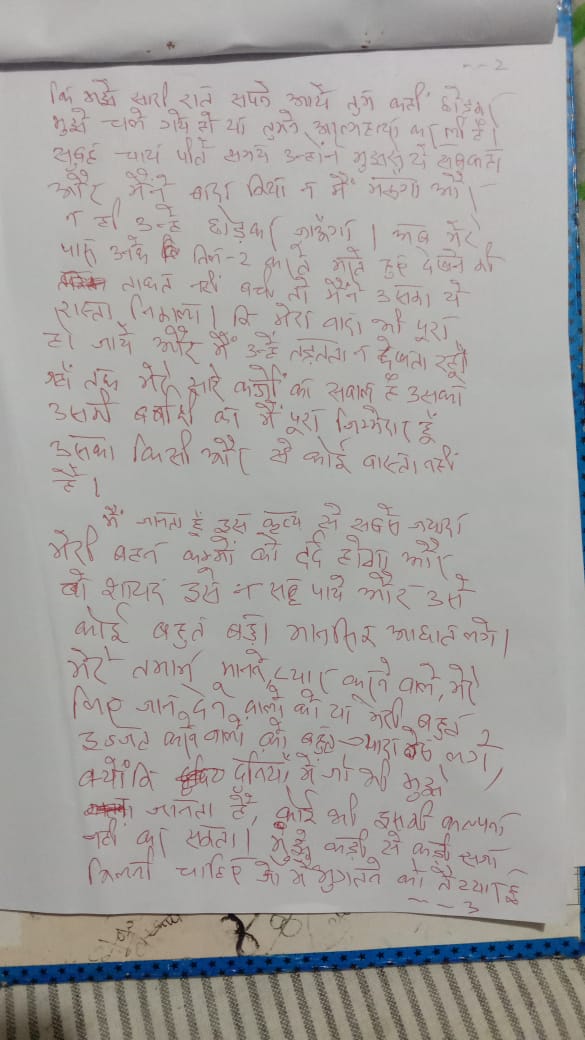 --2
कि मुझे सारी रात सपने आये तुम कहीं छोड़कर
मुझे चले गये हो या तुमने आत्महत्या कर ली है।
सुबह चाय पीते समय उन्होंने मुझसे ये सब कहा
और मैंने वादा किया न मैं मरूंगा और
न ही उन्हें छोड़कर जाऊँगा। अब मेरे
पास उनके तिल-2 करते मरते हुए देखने की
ताकत नहीं बची तो मैंने उसका ये
रास्ता निकाला। कि मेरा वादा भी पूरा
हो जाये और मैं उन्हें तड़पता न देखता रहूँ
जहाँ तक मेरे सारे कर्जों का सवाल है उसका
उसकी बर्बादी का मैं पूरा जिम्मेदार हूँ
उसका किसी और से कोई वास्ता नहीं
है।
मैं जानता हूँ इस कृत्य से सबसे ज्यादा
मेरी बहन को दर्द होगा और
वो शायद इसे न सह पाये और उसे
कोई बहुत बड़ा मानसिक आघात लगे।
मेरे तमाम मानने, प्यार करने वाले, मेरे
लिए जान देने वालों को या मेरी बहुत
इज्जत करने वालों को बहुत ज्यादा लगे,
क्योंकि दुनियाँ में जो भी मुझे
जानता है, कोई भी इसकी कल्पना
नहीं कर सकता। मुझे कड़ी से कड़ी सजा
मिलनी चाहिए जो मैं भुगतने को तैय्यार हूँ
--3